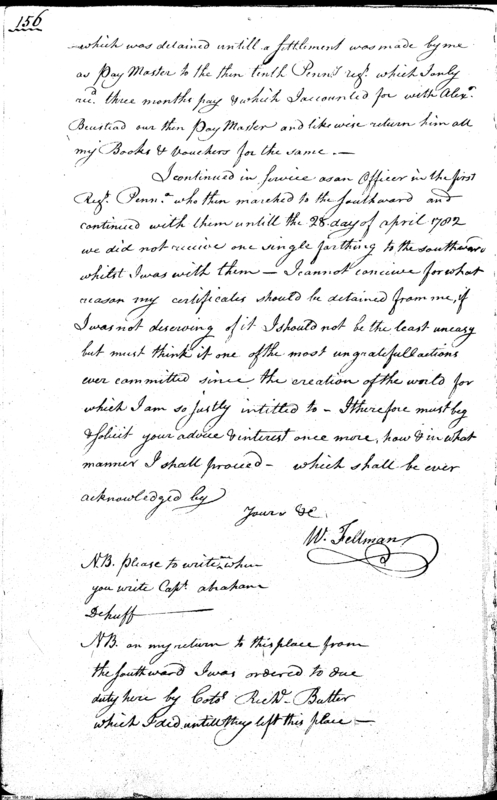 156
which was detained untill a settlement was made by me
as Pay Master to the then tenth Penn.ª reg.ᵗ which I only
rec.ᵈ three months pay & which I accounted for with Alex.ʳ
Benstead our then Pay Master and likewise return him all
my Books & Vouchers for the same. —
I continued in Service as an Officer in the first
Reg.ᵗ Penn.ª who then marched to the Southward and
continued with them untill the 28 day of april 1782
we did not receive one single farthing to the southward
whilst I was with them — I cannot conceive for what
reason my certificates should be detained from me, if
I was not deserving of it I should not be the least uneasy
but must think it one of the most ungratefull actions
ever committed since the creation of the world for
which I am so justly intitled to — I therefore must beg
& solicit your advice & interest once more, how & in what
manner I shall proceed — which shall be ever
acknowledged by
Yours &c
W. Feltman
N.B. Please to write me when
you write Cap.ᵗ abraham
Dehuff
N.B. on my return to this place from
the Southward I was ordered to due
duty here by Col.º Rich.ᵈ Butler
which I did untill they left this place —